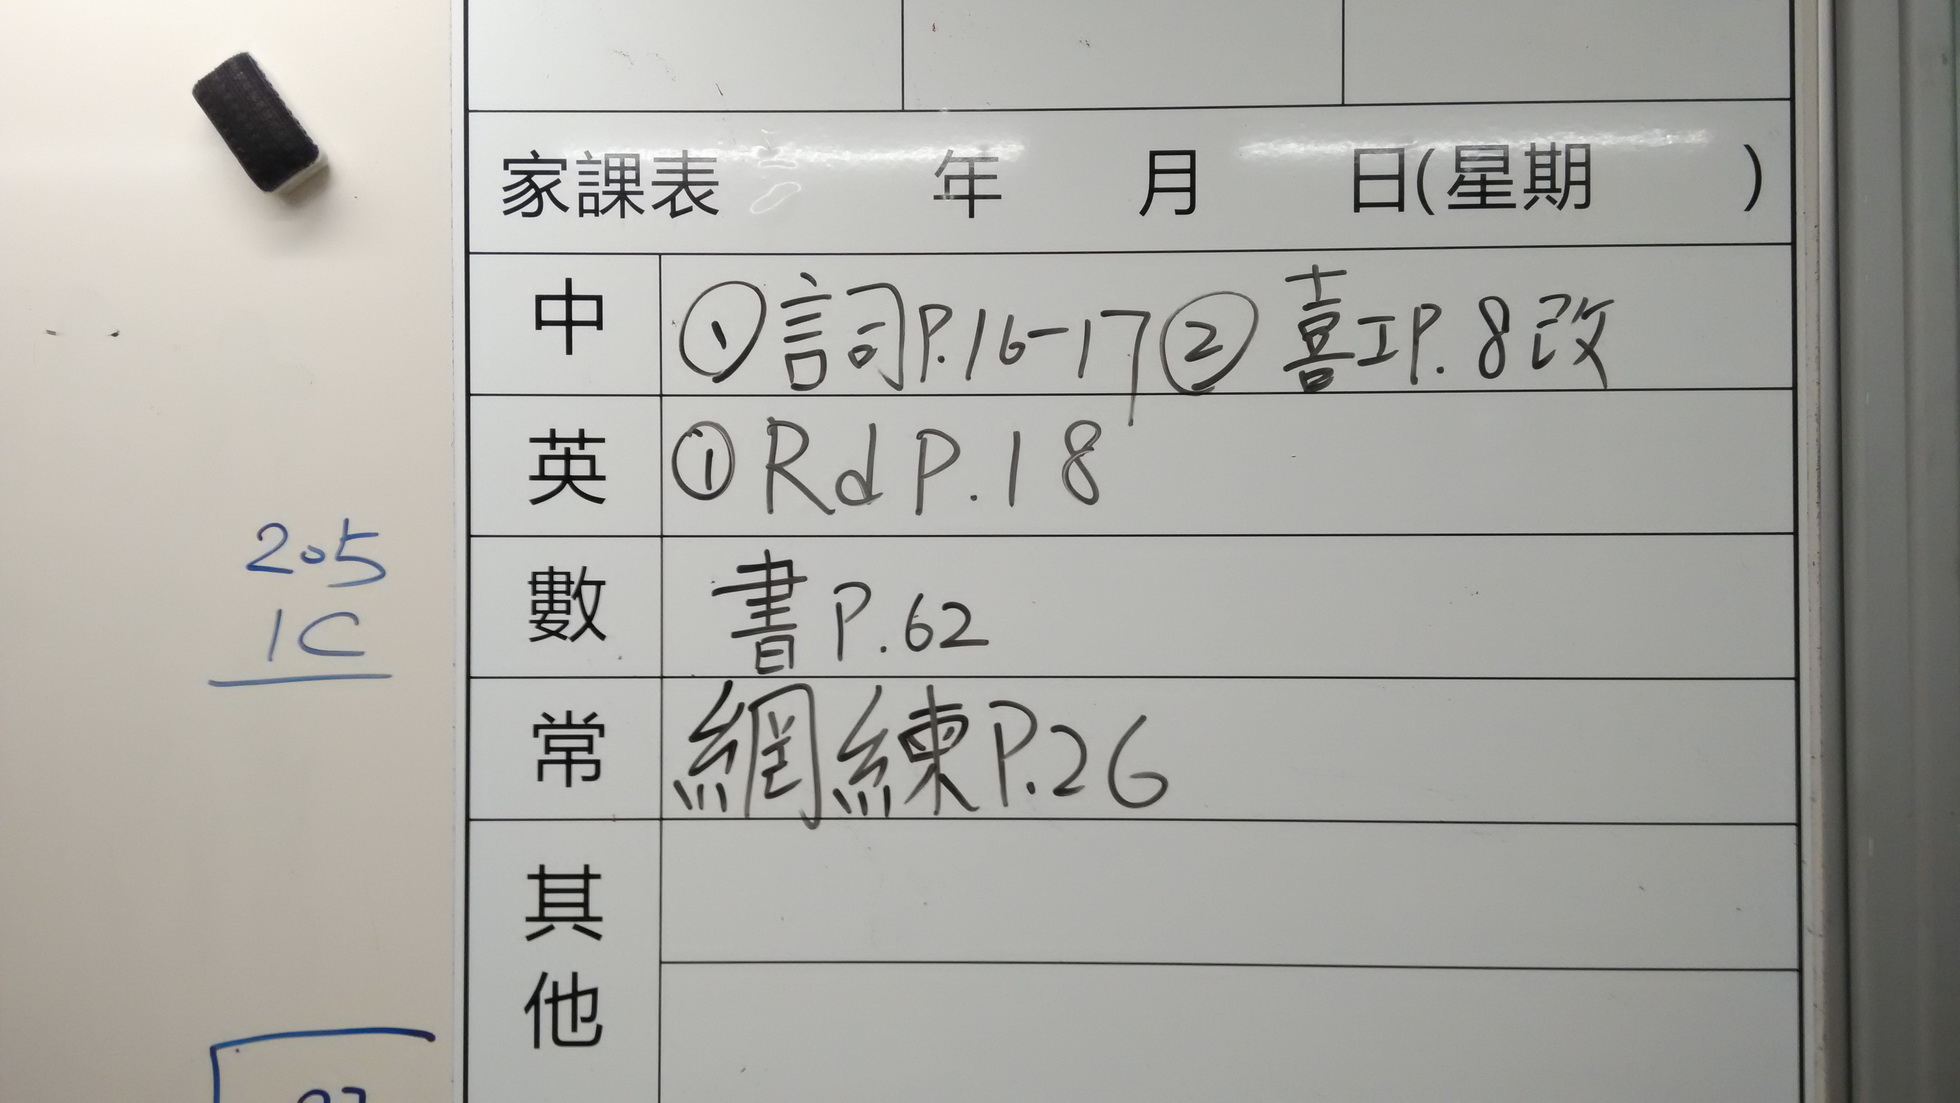 家課表 年 月 日(星期 )
中 ①詞P.16-17 ②喜工P.8改
英 ①Rd P.18
數 書P.62
常 網練P.26
其他
205
1C